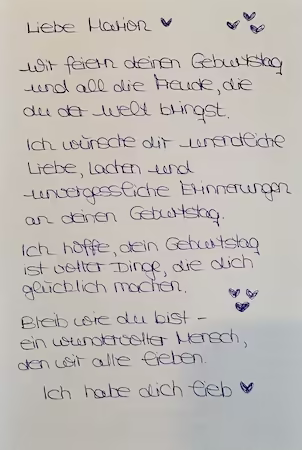 Liebe Marion ♥
Wir feiern deinen Geburtstag
und all die Freude, die
du der Welt bringst.
Ich wünsche dir unendliche
Liebe, Lachen und
unvergessliche Erinnerungen
an deinen Geburtstag.
Ich hoffe, dein Geburtstag
ist voller Dinge, die dich
glücklich machen.
Bleib wie du bist -
ein wundervoller Mensch,
den wir alle lieben.
Ich habe dich lieb ♥